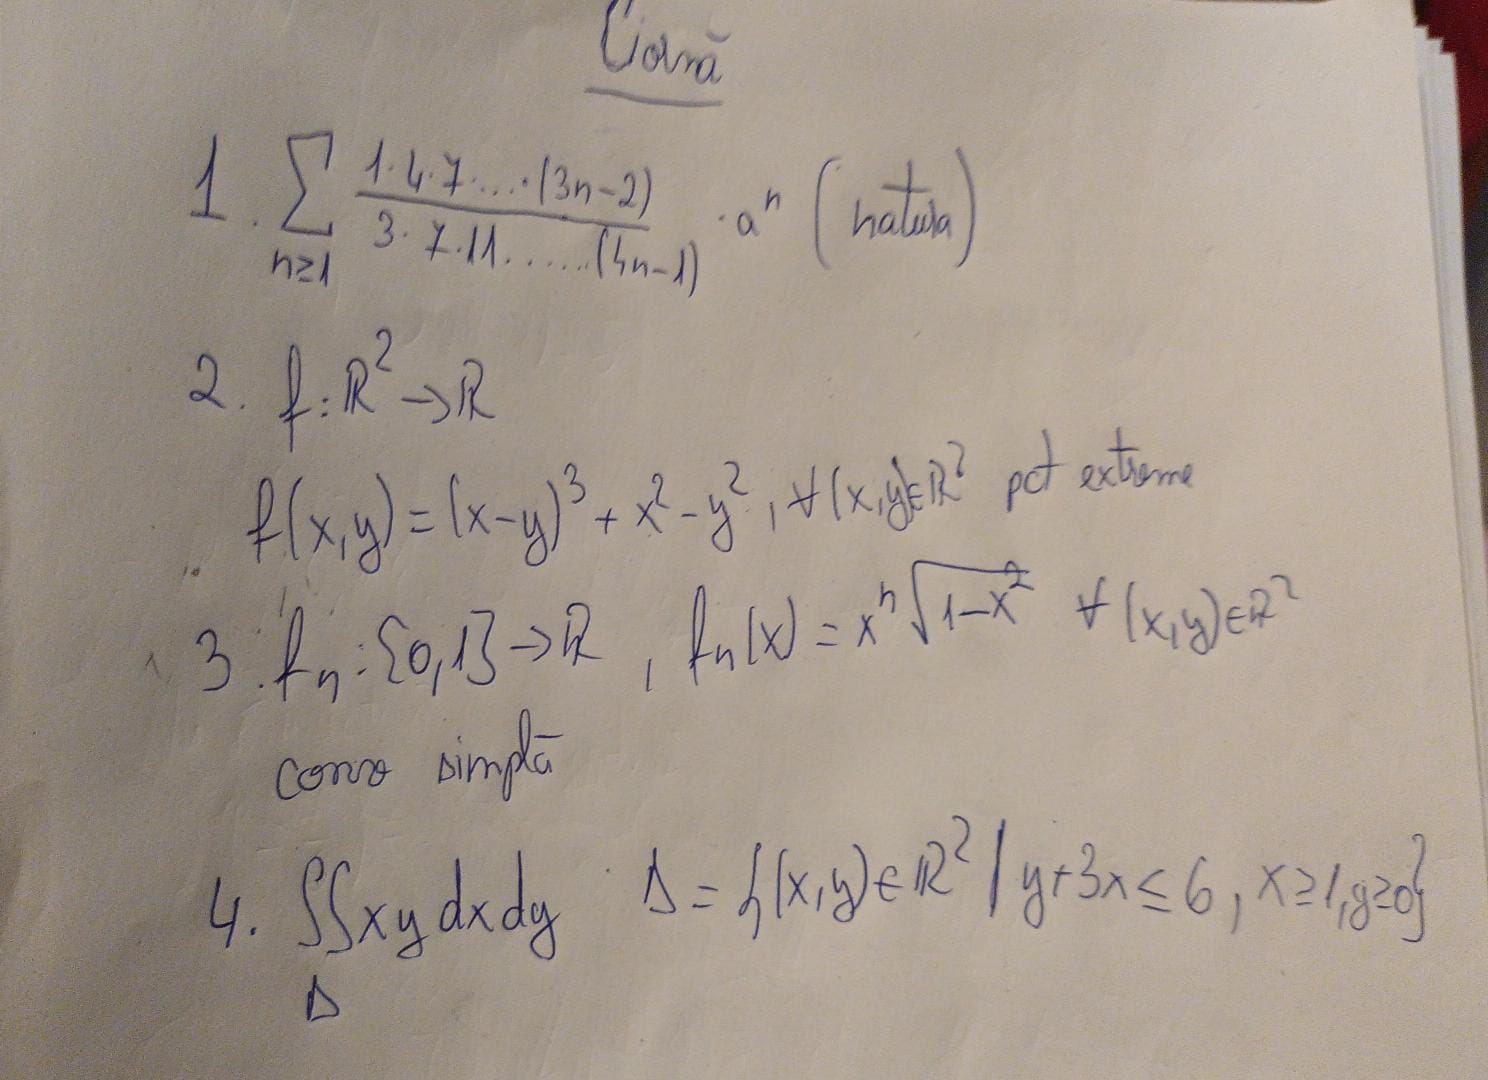 Ciornă
1. ∑ n≥1 1·4·7·....·(3n-2) / 3·7·11......(4n-1) · aⁿ (natura)
2. f: ℝ² → ℝ
f(x,y) = (x-y)³ + x² - y², ∀(x,y)∈ℝ² pct extreme
3. fₙ: {0,1} → ℝ, fₙ(x) = xⁿ√(1-x²) ∀(x,y)∈ℝ²
conv simplă
4. ∬_Δ xy dx dy Δ = {(x,y)∈ℝ² | y+3x ≤ 6, x≥1, y≥0}